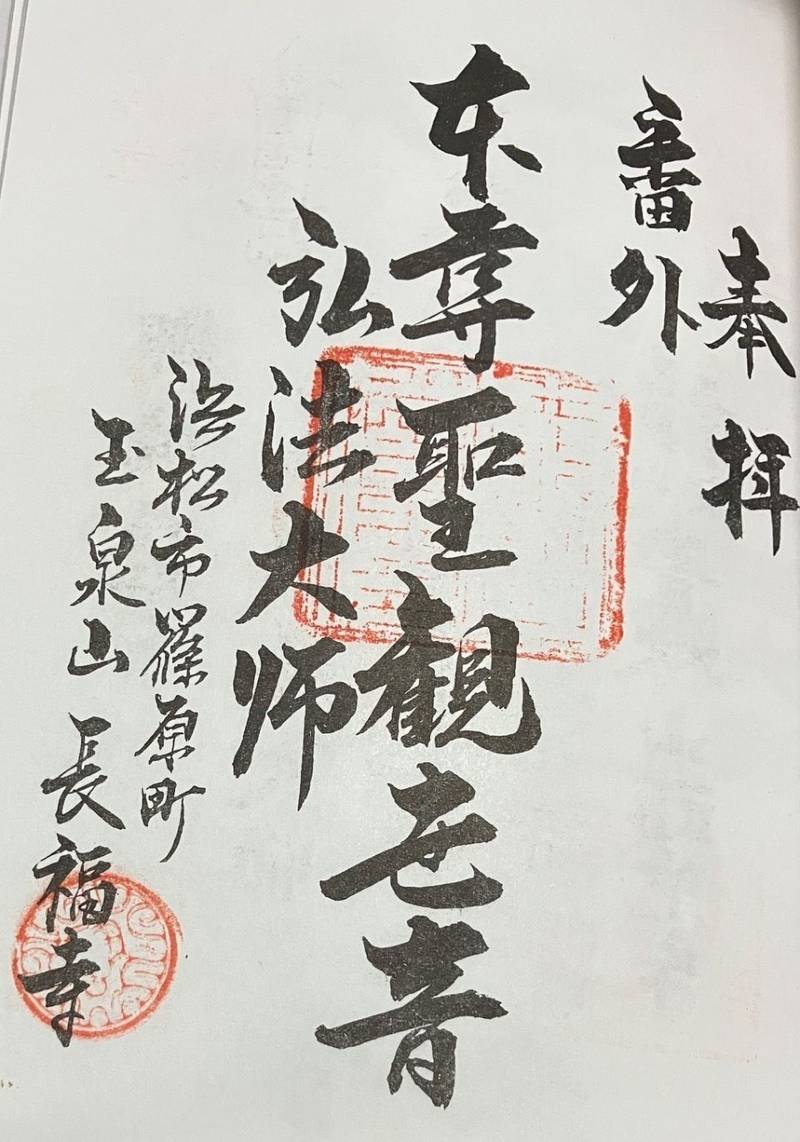 奉拝
番外
本尊聖観世音
弘法大師
浜松市篠原町
玉泉山長福寺